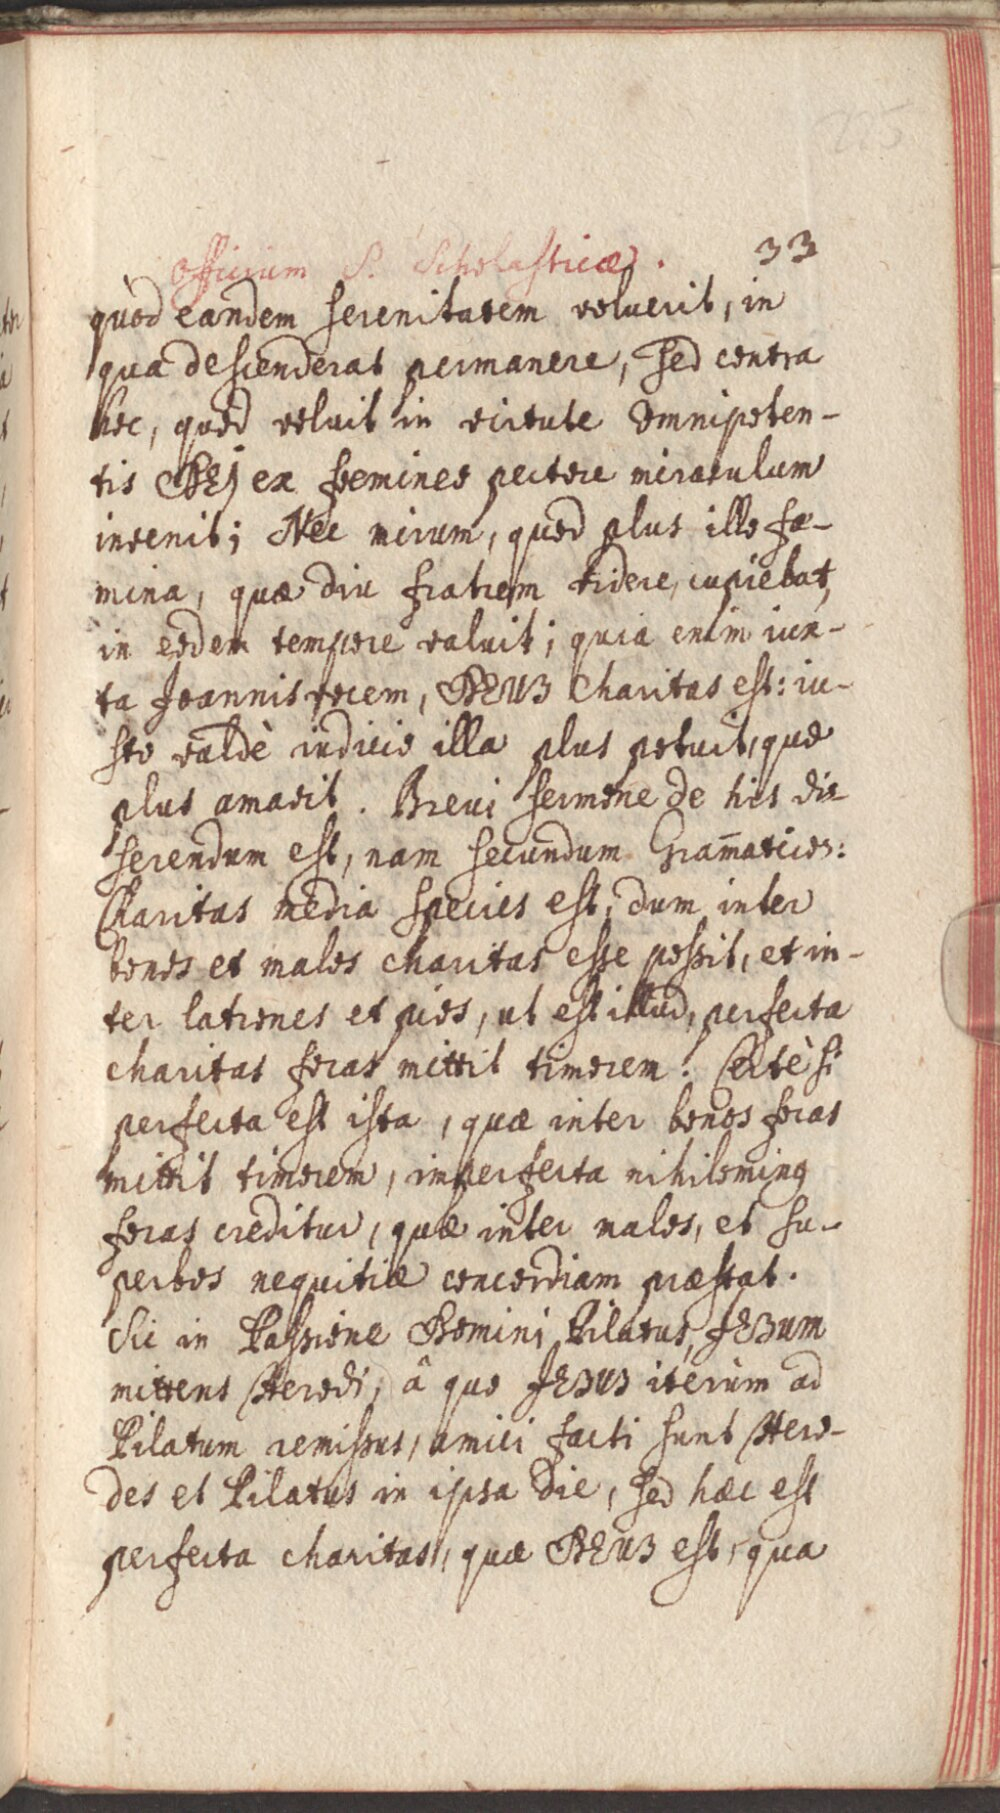 225
Officium S. Scholasticæ. 33
quòd eandem serenitatem voluerit, in
qua descenderat permanere, sed contra
hoc, quod voluit in virtute Omnipoten-
tis DEj ex fœmineo pectore miraculum
invenit; Nec mirum, quod plus illo fæ-
mina, quæ diu fratrem videre cupiebat,
in eodem tempore valuit; quia enim iux-
ta Joannis vocem, DEUS Charitas est: iu-
sto valdè iudicio illa plus potuit, quæ
plus amavit. Brevi sermone de his dis-
serendum est, nam secundum Gram̄aticos:
Charitas media species est, dum inter
bonos et malos charitas esse possit, et in-
ter latrones et pios, ut est illud, perfecta
charitas foras mittit timorem! Certè si
perfecta est ista, quæ inter bonos foras
mittit timorem, imperfecta nihilominq
foras creditur, quæ inter malos, et su-
perbos nequitiæ concordiam præstat.
Sic in Passione Domini Pilatus, JESUM
mittens Herodi, â quo JESUS iterùm ad
Pilatum remissus, amici facti sunt Hero-
des et Pilatus in ipsa die, sed hæc est
perfecta charitas, quæ DEUS est, qua